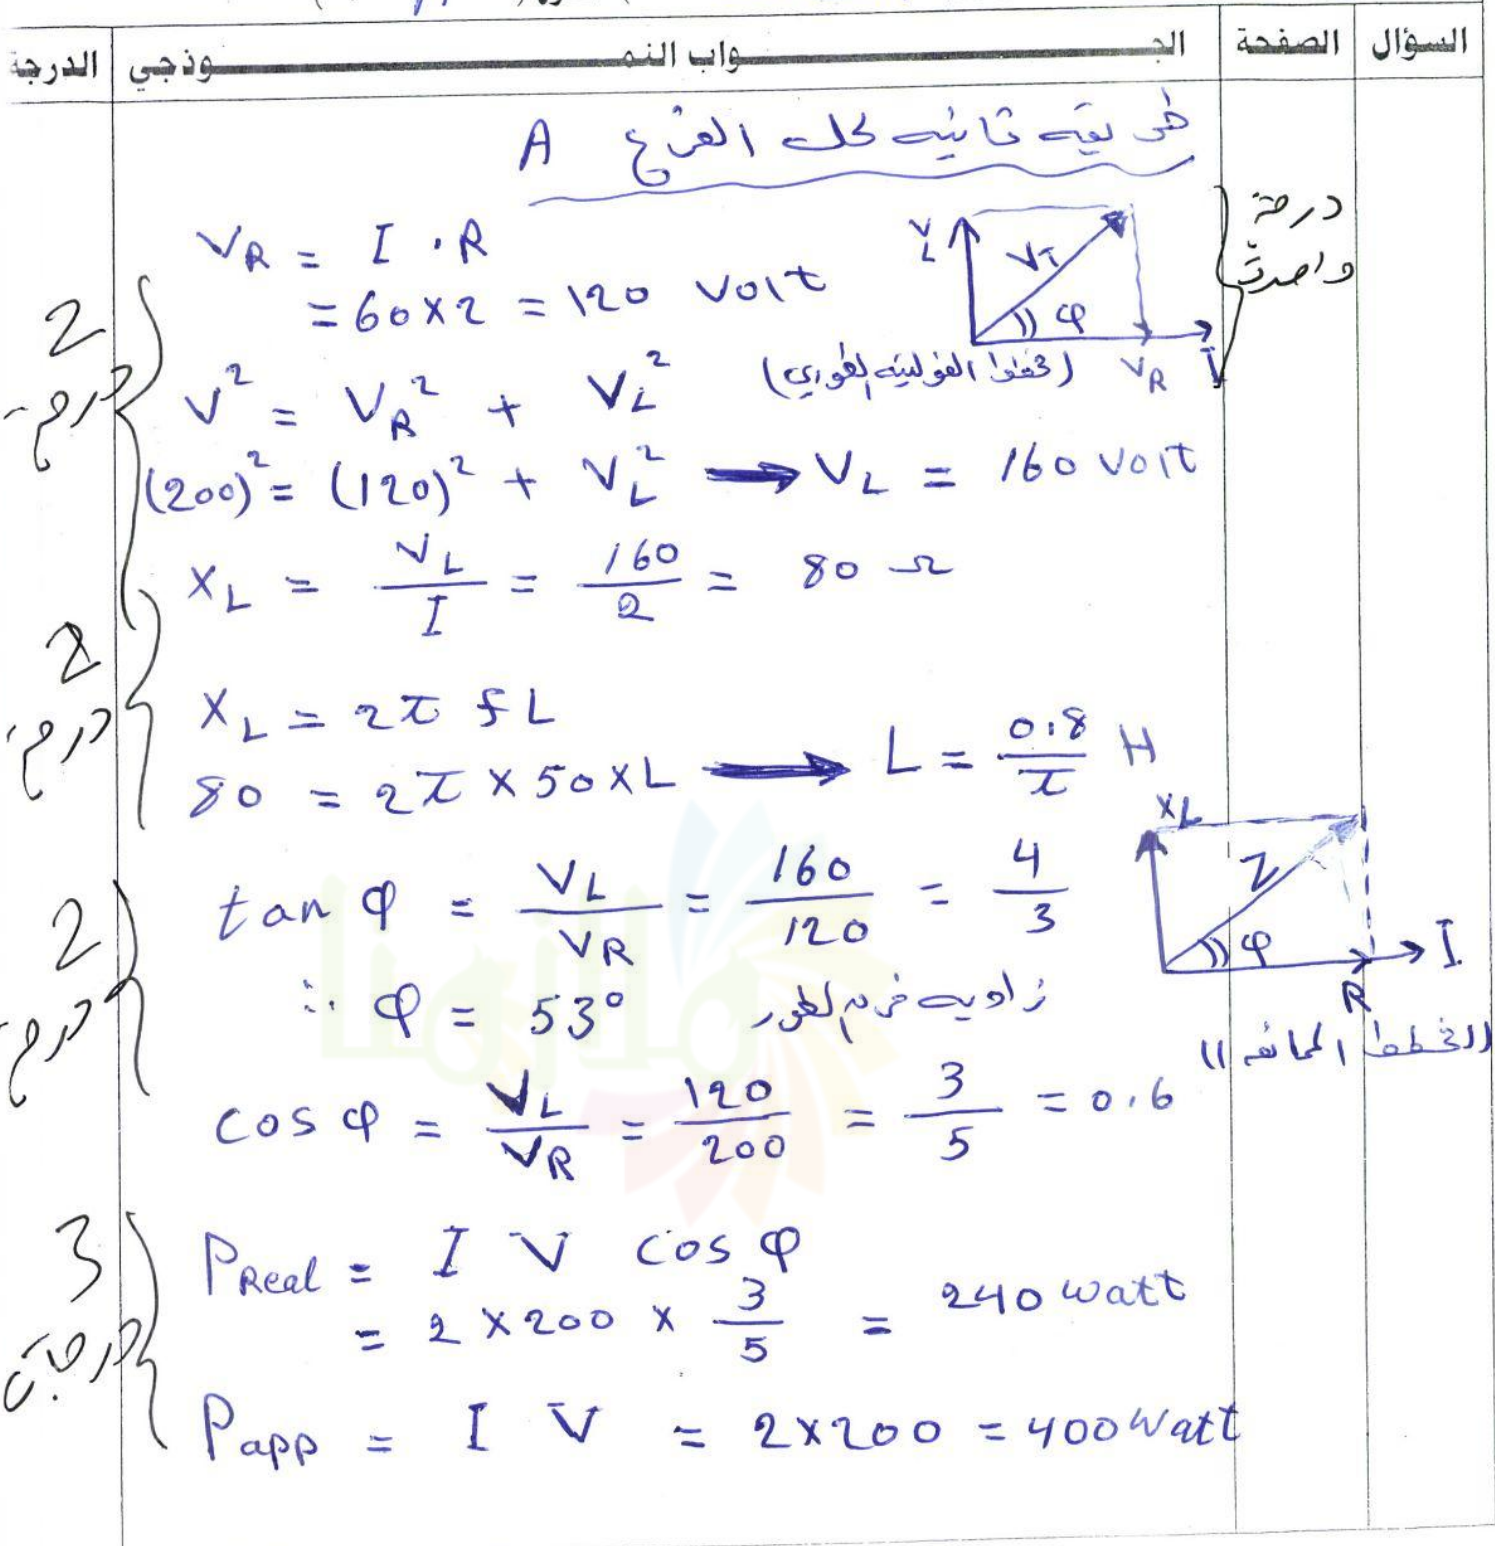 السؤال الصفحة الجـــواب النمـــوذجي الدرجة
طريقة ثانية لحل الفرع A
درجة واحدة
V_R = I . R
= 60 × 2 = 120 Volt
V_L V_T φ V_R I
(مخطط الفولتية الطوري)
2 درجة
V² = V_R² + V_L²
(200)² = (120)² + V_L² → V_L = 160 Volt
X_L = V_L / I = 160 / 2 = 80 Ω
2 درجة
X_L = 2π f L
80 = 2π × 50 × L → L = 0.8 / π H
X_L Z φ R I
((مخطط الممانعة))
2 درجة
tan φ = V_L / V_R = 160 / 120 = 4 / 3
∴ φ = 53° زاوية فرق الطور
cos φ = V_L / V_R = 120 / 200 = 3 / 5 = 0.6
3 درجات
P_Real = I V cos φ
= 2 × 200 × 3 / 5 = 240 watt
P_app = I V = 2×200 = 400 Watt
ملازمنا